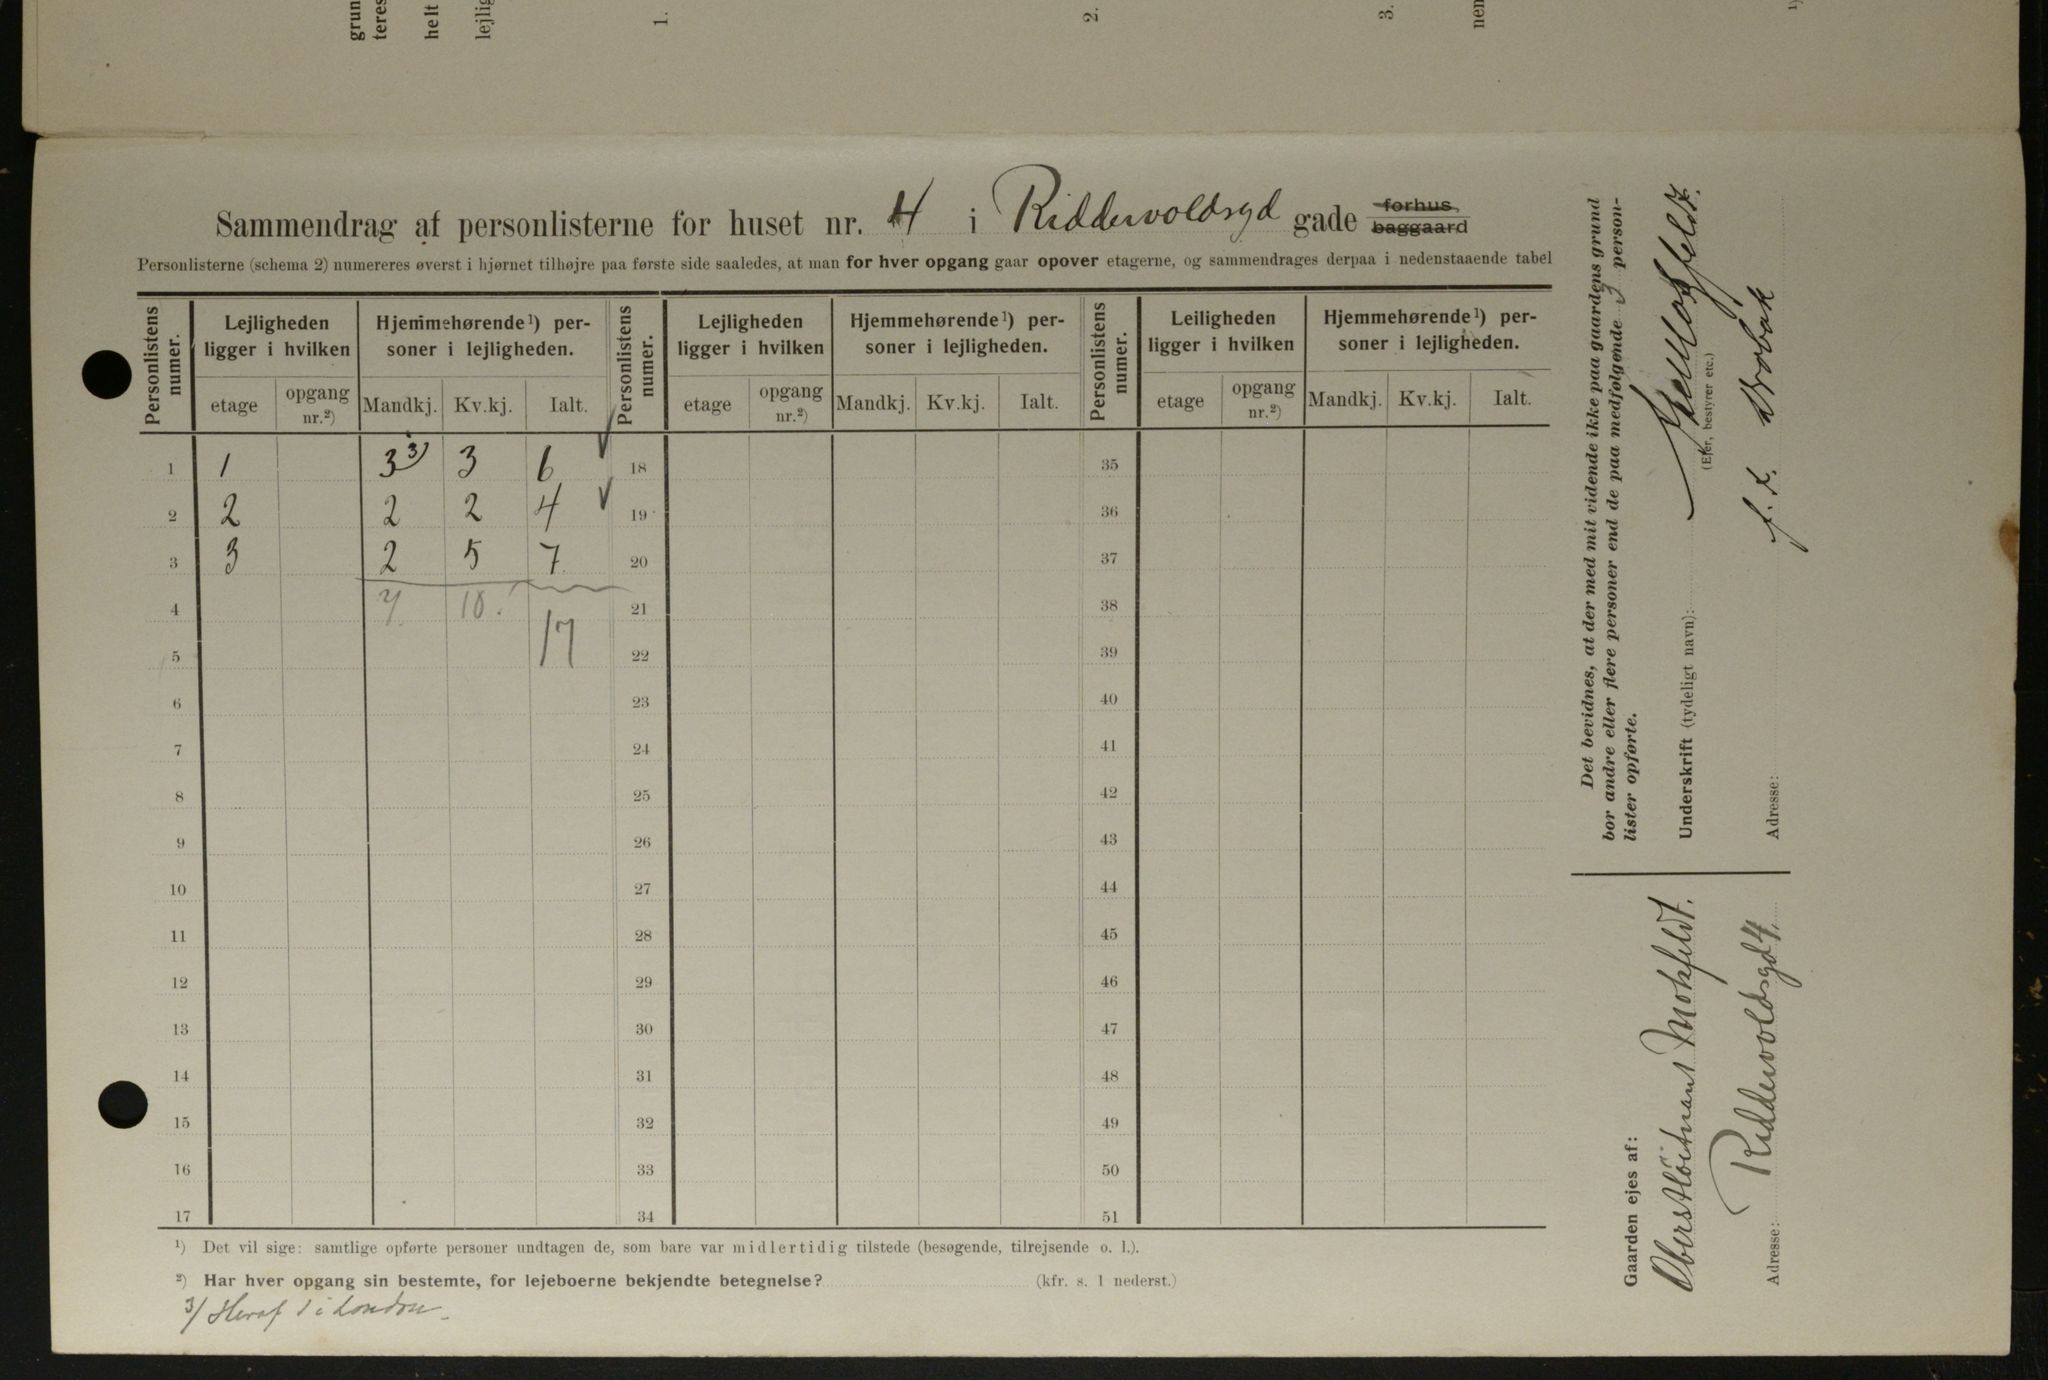 grun
teres
helt
lejlig
1.
2.
3.
nen
1)
Sammendrag af personlisterne for huset nr. 4 i Riddervoldsgd gade forhus baggaard
Personlisterne (schema 2) numereres øverst i hjørnet tilhøjre paa første side saaledes, at man for hver opgang gaar opover etagerne, og sammendrages derpaa i nedenstaaende tabel
Personlistens numer. Lejligheden ligger i hvilken Hjemmehørende¹) personer i lejligheden. Personlistens numer. Lejligheden ligger i hvilken Hjemmehørende¹) personer i lejligheden. Personlistens numer. Leiligheden ligger i hvilken Hjemmehørende¹) personer i lejligheden.
etage opgang nr.²) Mandkj. Kv.kj. Ialt. etage opgang nr.²) Mandkj. Kv.kj. Ialt. etage opgang nr.²) Mandkj. Kv.kj. Ialt.
1 1 3 3) 3 6 18 35
2 2 2 2 4 19 36
3 3 2 5 7 20 37
4 7 10. 21 38
17
5 22 39
6 23 40
7 24 41
8 25 42
9 26 43
10 27 44
11 28 45
12 29 46
13 30 47
14 31 48
15 32 49
16 33 50
17 34 51
¹) Det vil sige: samtlige opførte personer undtagen de, som bare var midlertidig tilstede (besøgende, tilrejsende o. l.).
²) Har hver opgang sin bestemte, for lejeboerne bekjendte betegnelse? (kfr. s. 1 nederst.)
3/ Heraf 1 i London
Det bevidnes, at der med mit vidende ikke paa gaardens grund
bor andre eller flere personer end de paa medfølgende 3 person-
lister opførte.
Underskrift (tydeligt navn):
(Ejer, bestyrer etc.)
Adresse: f. t. Drøbak
Gaarden ejes af:
Oberstløitnant Mohfeldt.
Adresse: Riddervoldsgd 4.